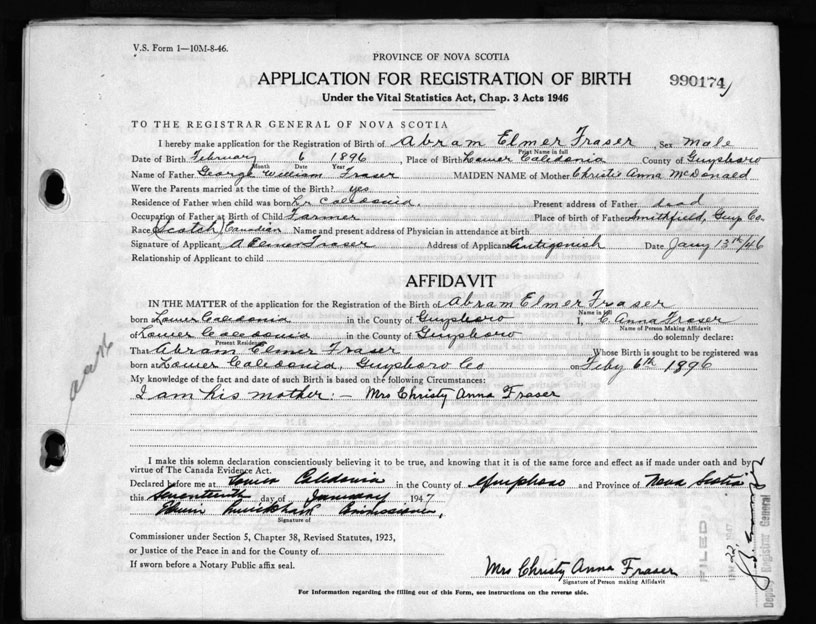 V.S. Form 1—10M-8-46.
PROVINCE OF NOVA SCOTIA
APPLICATION FOR REGISTRATION OF BIRTH
990174
Under the Vital Statistics Act, Chap. 3 Acts 1946
TO THE REGISTRAR GENERAL OF NOVA SCOTIA
I hereby make application for the Registration of Birth of Abram Elmer Fraser, Sex Male
Print Name in full
Date of Birth February 6 1896, Place of Birth Lower Caledonia County of Guysboro
Month Date Year
Name of Father George William Fraser MAIDEN NAME of Mother Christie Anna McDonald
Were the Parents married at the time of the Birth? yes
Residence of Father when child was born Lr Caledonia. Present address of Father dead
Occupation of Father at Birth of Child Farmer Place of birth of Father Smithfield, Guys Co.
Race (Scotch) Canadian Name and present address of Physician in attendance at birth
Signature of Applicant A Elmer Fraser Address of Applicant Antigonish Date Jany 13th/46
Relationship of Applicant to child
AFFIDAVIT
IN THE MATTER of the application for the Registration of the Birth of Abram Elmer Fraser
Name in full
born at Lower Caledonia in the County of Guysboro I, C Anna Fraser
Name of Person Making Affidavit
of Lower Caledonia in the County of Guysboro do solemnly declare:
Present Residence
That Abram Elmer Fraser Whose Birth is sought to be registered was
born at Lower Caledonia, Guysboro Co on Feby 6th 1896
My knowledge of the fact and date of such Birth is based on the following Circumstances:
I am his mother:— Mrs Christy Anna Fraser
I make this solemn declaration conscientiously believing it to be true, and knowing that it is of the same force and effect as if made under oath and by
virtue of The Canada Evidence Act.
Declared before me at Lower Caledonia in the County of Guysboro and Province of Nova Scotia
this Seventeenth day of January 1947
Commissioner,
Signature of
Commissioner under Section 5, Chapter 38, Revised Statutes, 1923,
or Justice of the Peace in and for the County of
If sworn before a Notary Public affix seal.
Mrs Christy Anna Fraser
Signature of Person making Affidavit
For Information regarding the filling out of this Form, see instructions on the reverse side.
FILED
Deputy Registrar General